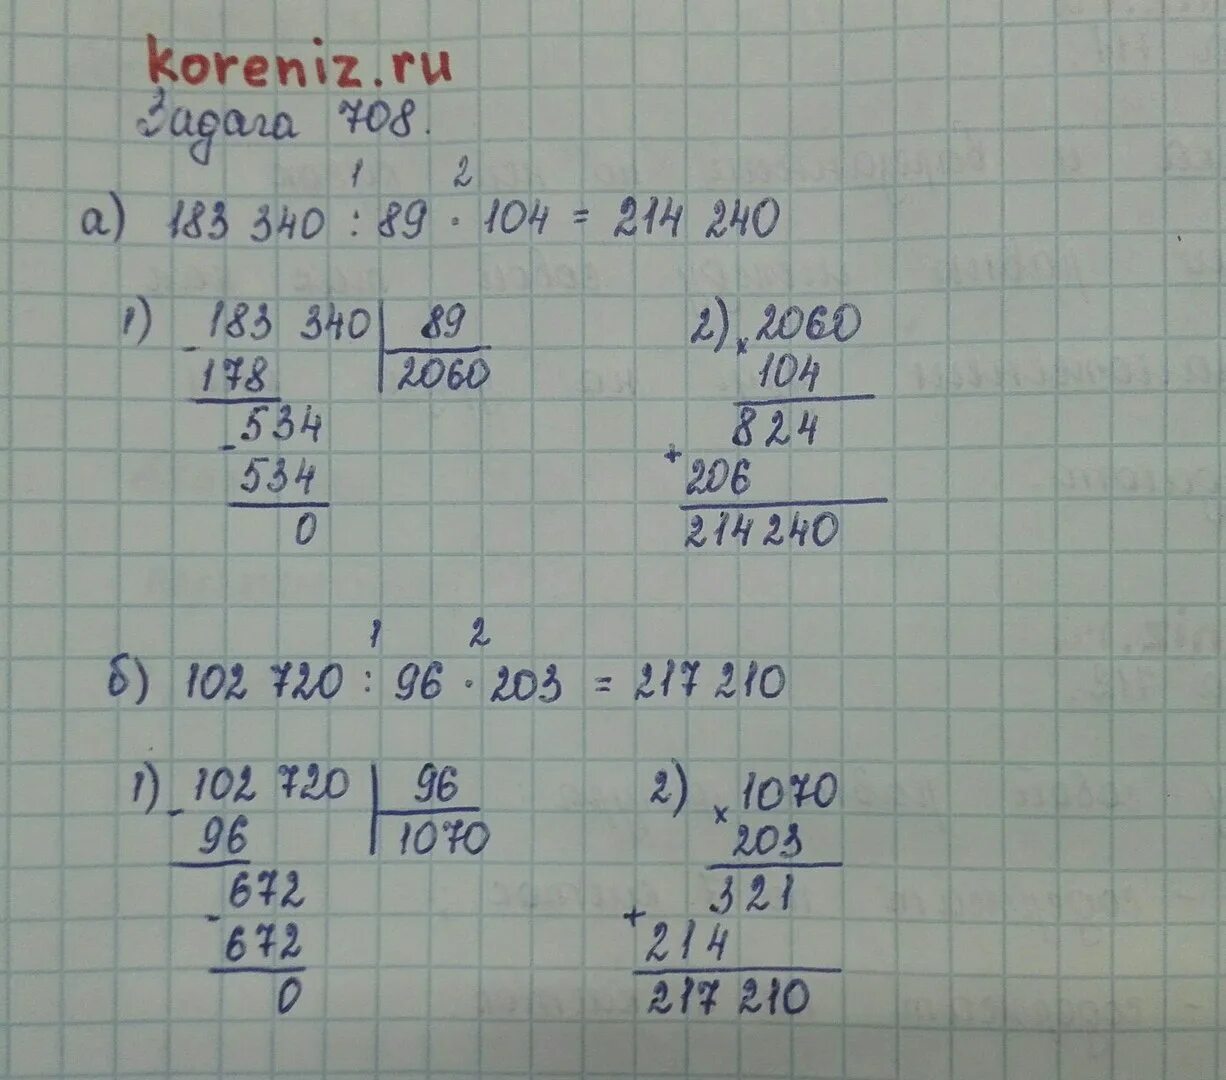 koreniz.ru
Задача 708.
1 2
а) 183 340 : 89 · 104 = 214 240
1) - 183 340 | 89
178 | 2060
- 534
534
0
2) × 2060
104
824
+ 206
214 240
1 2
б) 102 720 : 96 · 203 = 217 210
1) - 102 720 | 96
96 | 1070
- 672
672
0
2) × 1070
203
321
+ 214
217 210